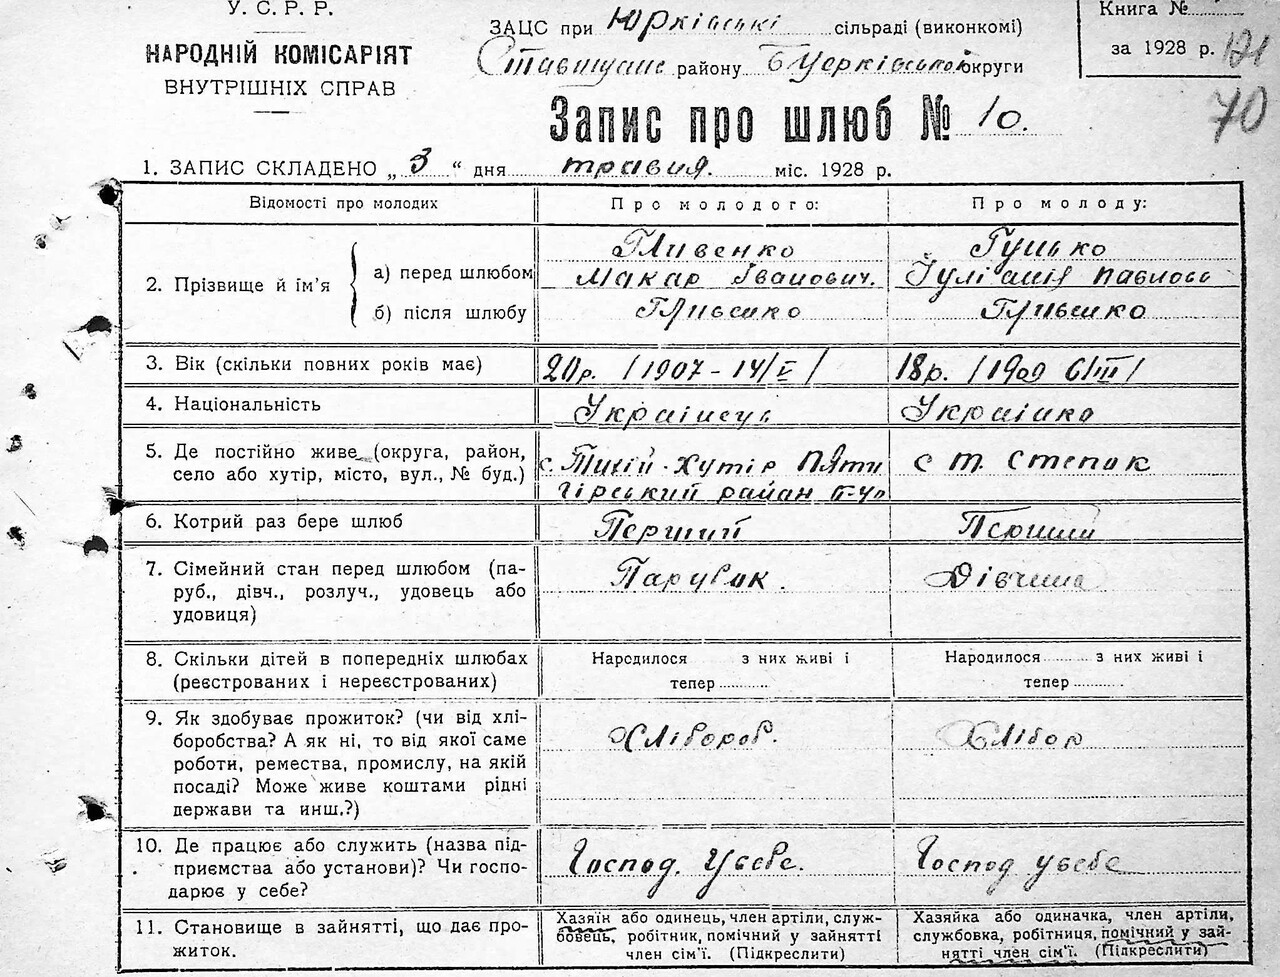 У. С. Р. Р.
НАРОДНІЙ КОМІСАРІЯТ
ВНУТРІШНІХ СПРАВ
ЗАЦС при Юрківські сільраді (виконкомі)
Ставищане району Б Церківської округи
Книга №
за 1928 р. 121
70
Запис про шлюб № 10.
1. ЗАПИС СКЛАДЕНО „ 3 “ дня травня. міс. 1928 р.
Відомості про молодих
Про молодого:
Про молоду:
2. Прізвище й ім'я
а) перед шлюбом
Гливенко
Макар Іванович.
Гуцько
Іуліанія Павлов
б) після шлюбу
Гливенко
Гливенко
3. Вік (скільки повних років має)
20р. /1907 - 14/V/
18р. /1909 6/III/
4. Національність
Українець
Українка
5. Де постійно живе (округа, район,
село або хутір, місто, вул., № буд.)
с. Тихій-Хутір Пяти
гірський район Б-Ц
с Т. Степок
6. Котрий раз бере шлюб
Перший
Перший
7. Сімейний стан перед шлюбом (па-
руб., дівч., розлуч., удовець або
удовиця)
Парубок.
Дівчина
8. Скільки дітей в попередніх шлюбах
(реєстрованих і нереєстрованих)
Народилося з них живі і
тепер
Народилося з них живі і
тепер
9. Як здобуває прожиток? (чи від хлі-
боробства? А як ні, то від якої саме
роботи, ремества, промислу, на якій
посаді? Може живе коштами рідні
держави та инш.?)
Хлібороб.
Хлібор
10. Де працює або служить (назва під-
приємства або установи)? Чи госпо-
дарює у себе?
Господ. Увебе.
Господ увебе
11. Становище в зайнятті, що дає про-
житок.
Хазяїн або одинець, член артіли, служ-
бовець, робітник, помічний у зайнятті
член сім'ї. (Підкреслити)
Хазяйка або одиначка, член артіли,
службовка, робітниця, помічний у зай-
нятті член сім'ї. (Підкреслити)